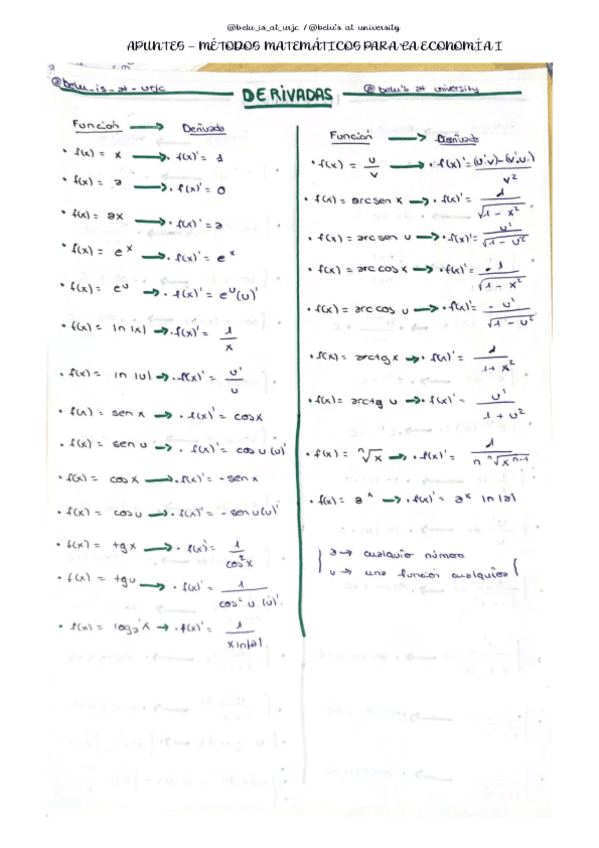 @belu_is_at_urjc / @belu's at university
APUNTES - MÉTODOS MATEMÁTICOS PARA LA ECONOMÍA I
@belu_is_at_urjc
DERIVADAS
@belu's at university
Función → Derivada
• f(x) = x → • f(x)' = 1
• f(x) = a → • f(x)' = 0
• f(x) = ax → • f(x)' = a
• f(x) = e^x → • f(x)' = e^x
• f(x) = e^u → • f(x)' = e^u(u)'
• f(x) = ln |x| → • f(x)' = 1/x
• f(x) = ln |u| → • f(x)' = u'/u
• f(x) = sen x → • f(x)' = cos x
• f(x) = sen u → • f(x)' = cos u (u)'
• f(x) = cos x → • f(x)' = - sen x
• f(x) = cos u → • f(x)' = - sen u (u)'
• f(x) = tg x → • f(x)' = 1/cos² x
• f(x) = tg u → • f(x)' = 1/cos² u (u)'.
• f(x) = log_a x → • f(x)' = 1/x ln|a|
Función → Derivada
• f(x) = u/v → • f(x)' = (u'·v)-(v'·u)/v²
• f(x) = arc sen x → • f(x)' = 1/√1 - x²
• f(x) = arc sen u → • f(x)' = u'/√1 - u²
• f(x) = arc cos x → • f(x)' = - 1/√1 - x²
• f(x) = arc cos u → • f(x)' = - u'/√1 - u²
• f(x) = arctg x → • f(x)' = 1/1 + x²
• f(x) = arctg u → • f(x)' = u'/1 + u²
• f(x) = ⁿ√x → • f(x)' = 1/n ⁿ√x^n-1
• f(x) = a^x → • f(x)' = a^x ln |a|
a → cualquier número
u → una función cualquiera